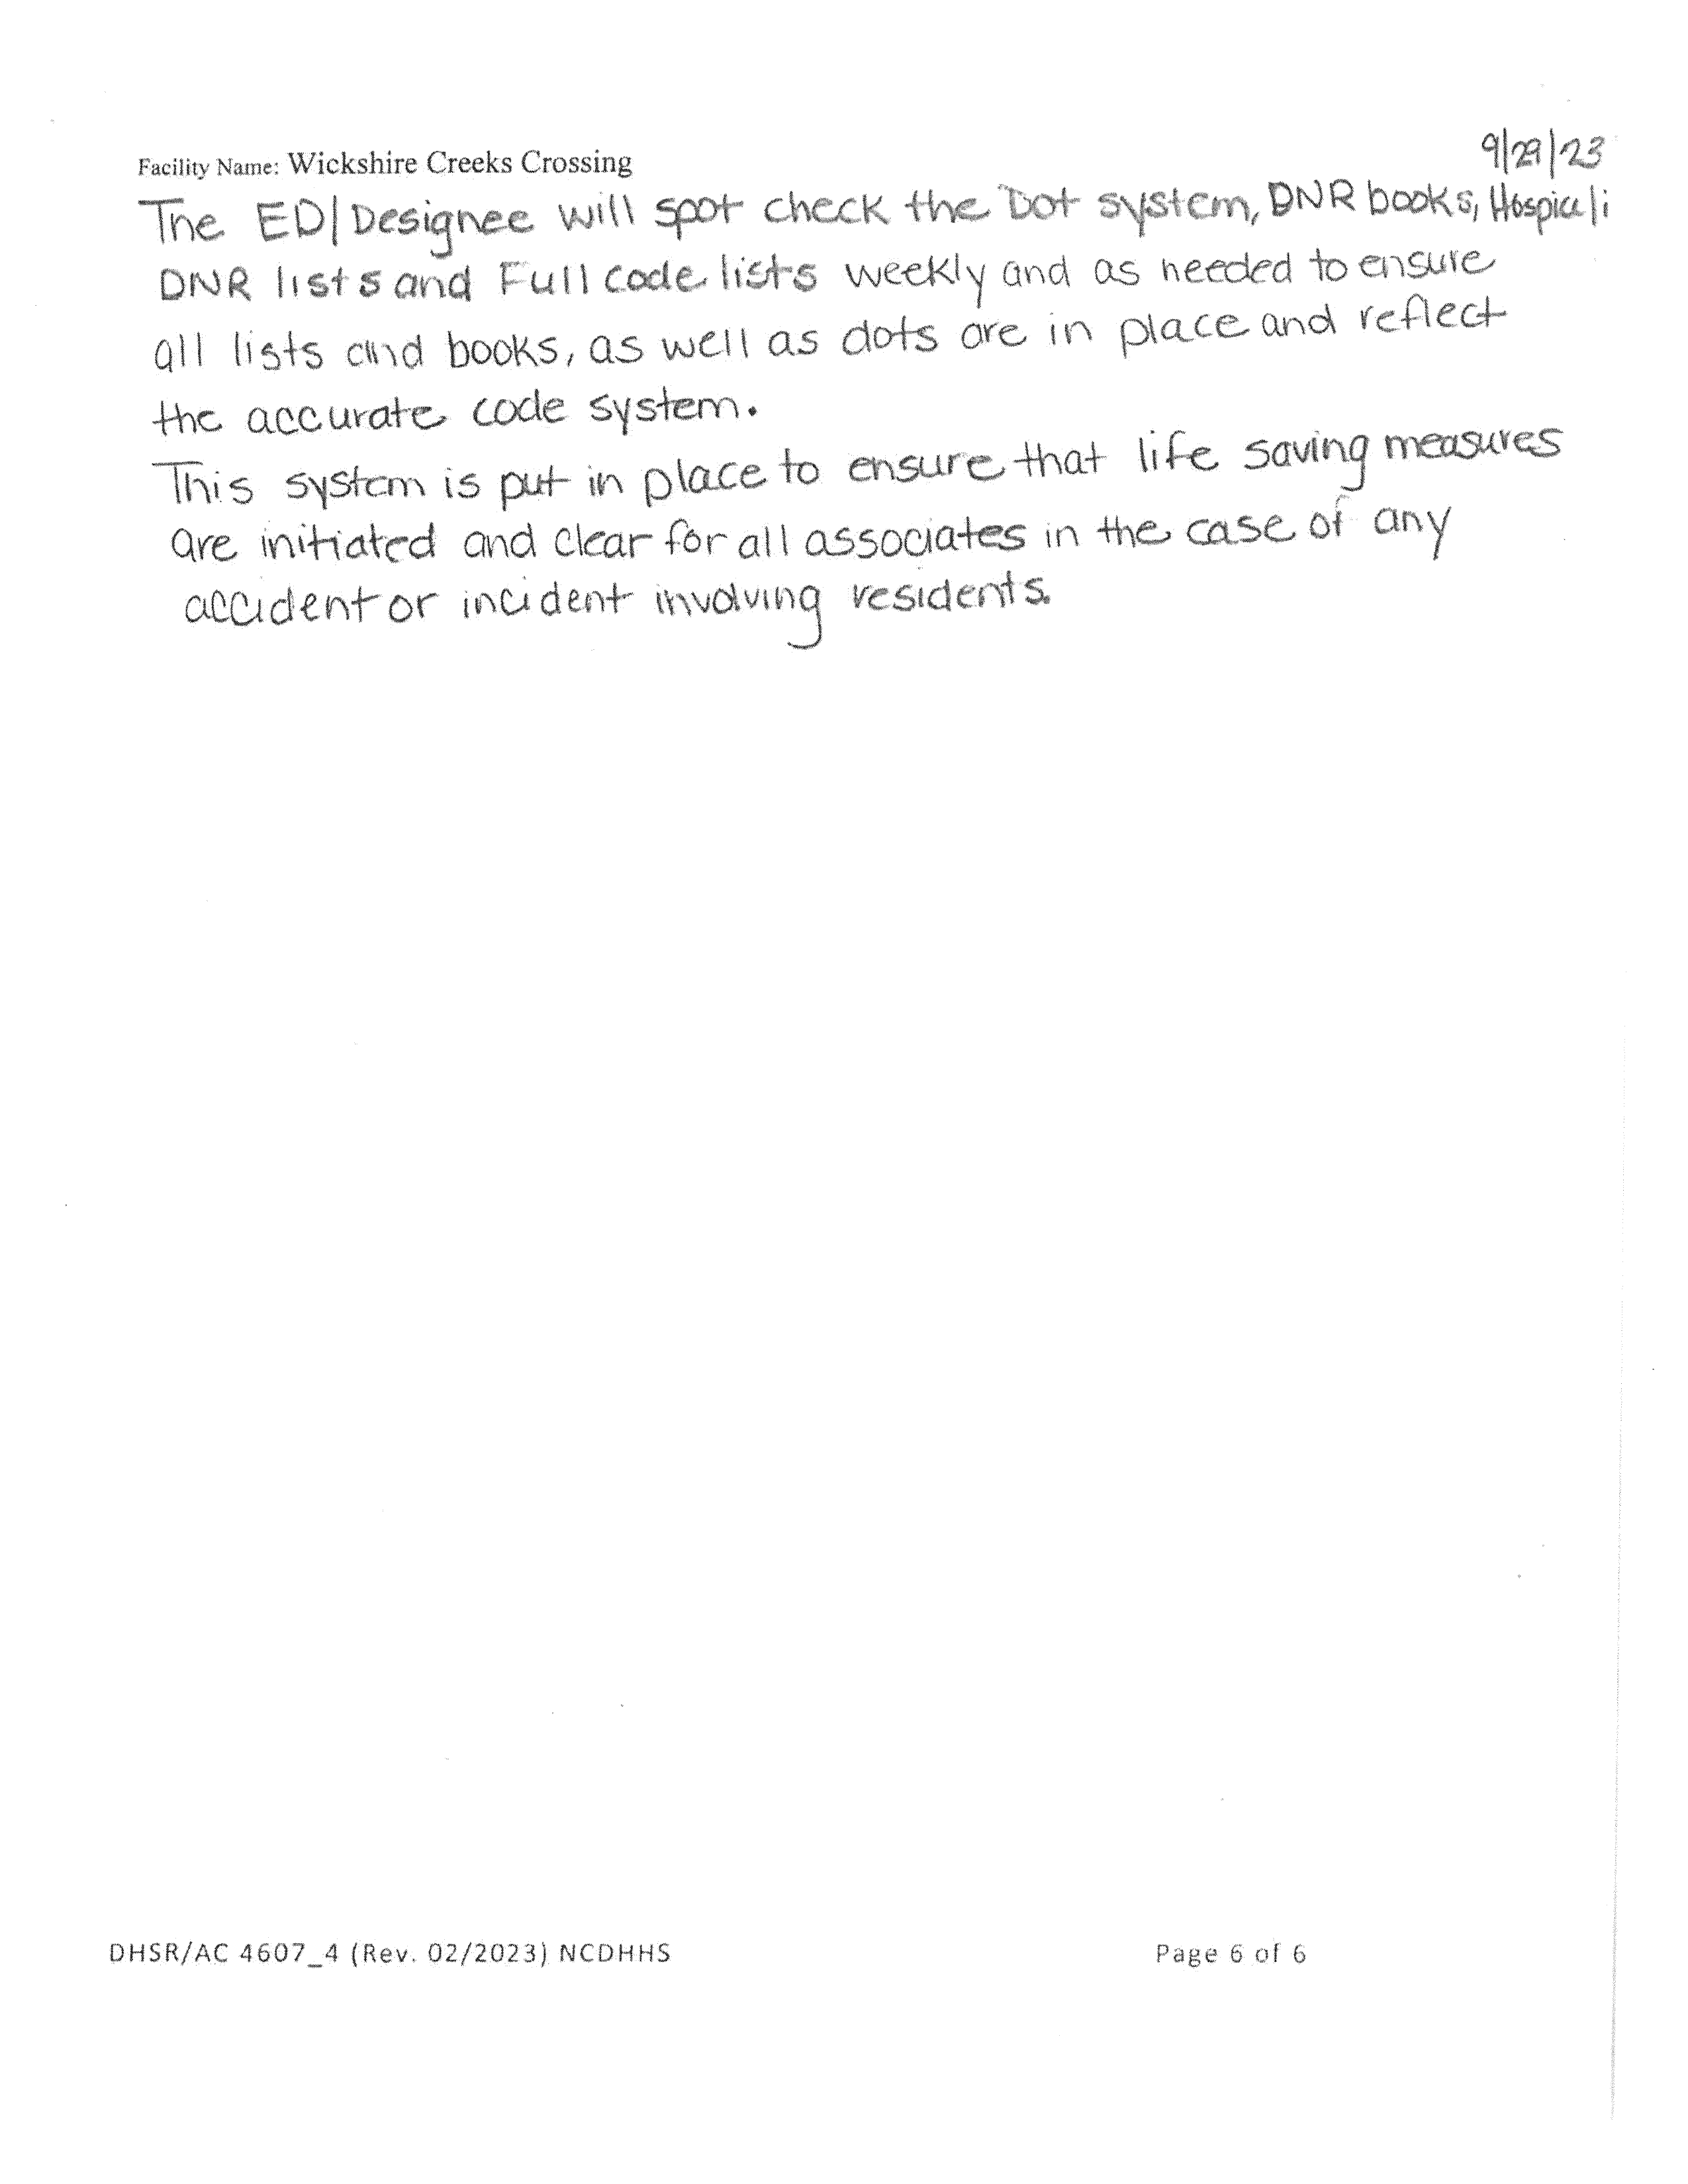 9/29/23
Facility Name: Wickshire Creeks Crossing
The ED/Designee will spot check the Dot system, DNR books, Hospice li
DNR lists and Full code lists weekly and as needed to ensure
all lists and books, as well as dots are in place and reflect
the accurate code system.
This system is put in place to ensure that life saving measures
are initiated and clear for all associates in the case of any
accident or incident involving residents.
DHSR/AC 4607_4 (Rev. 02/2023) NCDHHS Page 6 of 6